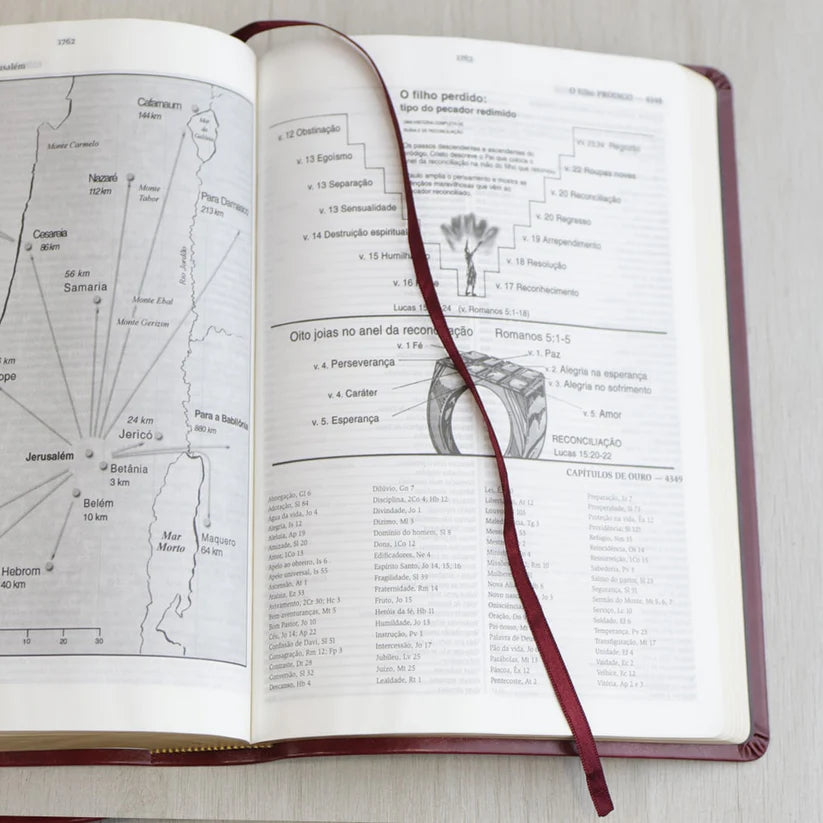 1762
usalém
Cafarnaum
144 km
Mar
da
Galiléia
Monte Carmelo
Nazaré
112 km
Monte
Tabor
Para Damasco
213 km
Cesareia
86 km
Rio Jordão
56 km
Samaria
Monte Ebal
Monte Gerizim
km
ope
24 km
Jericó
Para a Babilônia
880 km
Jerusalém
Betânia
3 km
Belém
10 km
Mar
Morto
Maquero
64 km
Hebrom
40 km
10 20 30
1763
O filho PRÓDIGO — 4348
O filho perdido:
tipo do pecador redimido
UMA HISTÓRIA COMPLETA DE
RUÍNA E DE RECONCILIAÇÃO
Os passos descendentes e ascendentes do
pródigo. Cristo descreve o Pai que coloca o
anel da reconciliação na mão do filho que retornou.
Paulo amplia o pensamento e mostra as
bênçãos maravilhosas que vêm ao
pecador reconciliado.
v. 12 Obstinação
v. 13 Egoísmo
v. 13 Separação
v. 13 Sensualidade
v. 14 Destruição espiritual
v. 15 Humilh
v. 16
vv. 23,24 Regozijo
v. 22 Roupas novas
v. 20 Reconciliação
v. 20 Regresso
v. 19 Arrependimento
v. 18 Resolução
v. 17 Reconhecimento
Lucas 15 24 (v. Romanos 5:1-18)
Oito joias no anel da reconciliação Romanos 5:1-5
v. 1 Fé
v. 4. Perseverança
v. 4. Caráter
v. 5. Esperança
v. 1. Paz
v. 2. Alegria na esperança
v. 3. Alegria no sofrimento
v. 5. Amor
RECONCILIAÇÃO
Lucas 15:20-22
CAPÍTULOS DE OURO — 4349
Abnegação, Gl 6
Adoração, Sl 84
Água da vida, Jo 4
Alegria, Is 12
Aleluia, Ap 19
Amizade, Sl 20
Amor, 1Co 13
Apelo ao obreiro, Is 6
Apelo universal, Is 55
Ascensão, At 1
Atalaia, Ez 33
Avivamento, 2Cr 30; Hc 3
Bem-aventuranças, Mt 5
Bom Pastor, Jo 10
Céu, Jo 14; Ap 22
Confissão de Davi, Sl 51
Consagração, Rm 12; Fp 3
Contraste, Dt 28
Conversão, Sl 32
Descanso, Hb 4
Dilúvio, Gn 7
Disciplina, 2Co 4; Hb 12
Divindade, Jo 1
Dízimo, Ml 3
Domínio do homem, Sl 8
Dons, 1Co 12
Edificadores, Ne 4
Espírito Santo, Jo 14, 15, 16
Fragilidade, Sl 39
Fraternidade, Rm 14
Fruto, Jo 15
Heróis da fé, Hb 11
Humildade, Jo 13
Instrução, Pv 1
Intercessão, Jo 17
Jubileu, Lv 25
Juízo, Mt 25
Lealdade, Rt 1
Lei, Êx
At 12
105
Tg 3
Novo nasc
Oração, Da
Pai-nosso, M
Palavra de Deus
Pão da vida, Jo
Parábolas, Mt 13
Páscoa, Êx 12
Pentecoste, At 2
Preparação, Ez 7
Prosperidade, Sl 73
Proteção na vida, Êx 12
Providência, Sl 121
Refúgio, Nm 35
Reincidência, Os 14
Ressurreição, 1Co 15
Sabedoria, Pv 3
Salmo do pastor, Sl 23
Segurança, Sl 91
Sermão do Monte, Mt 5, 6, 7
Serviço, Lc 10
Soldado, Ef 6
Temperança, Pv 23
Transfiguração, Mt 17
Unidade, Ef 4
Vaidade, Ec 2
Velhice, Ec 12
Vitória, Ap 2 e 3